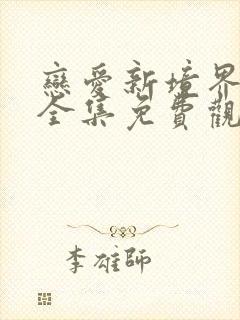 戀愛新境界
全集免費觀
李雄師